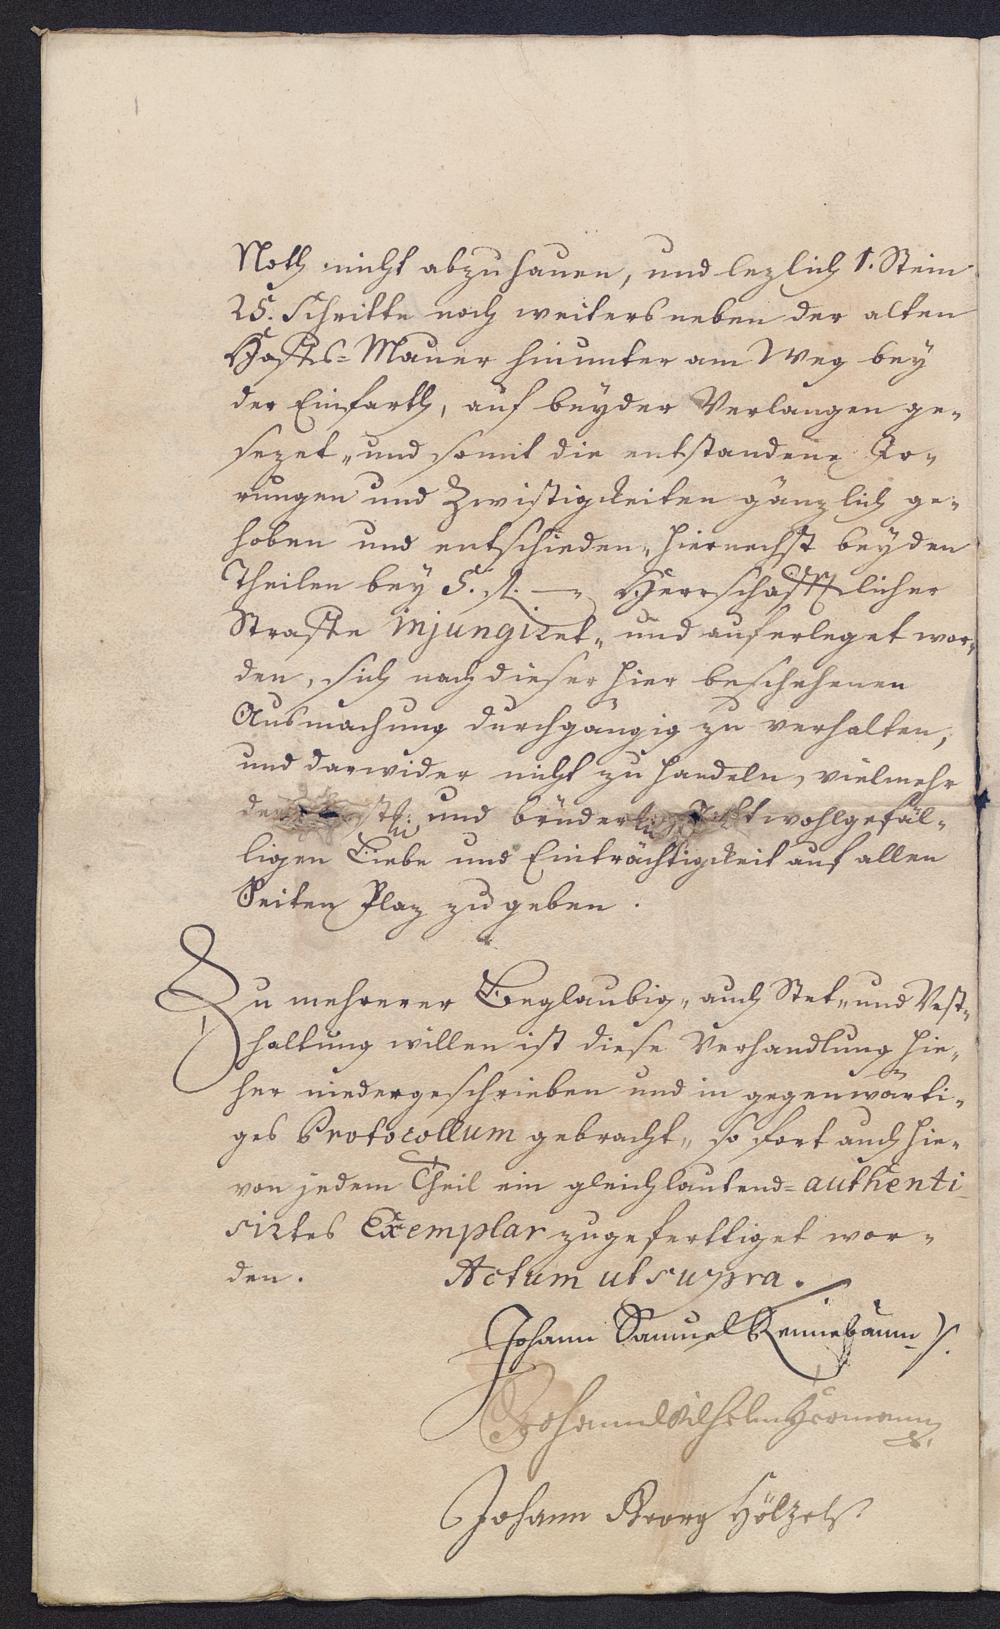 Noth nicht abzuhauen, und lezlich 1. Stein
25. Schritte noch weiters neben der alten
Hofs=Mauer hinunter am Weg bey
der Einfarth, auf beyder Verlangen ge„
sezet„ und somit die entstandene Ir„
rungen und Zwistigkeiten gänzlich ge„
hoben und entschieden„ hiernechst beyden
Theilen bey 5. fl. — „ Herrschafftlicher
Straffe injungiret„ und auferleget wor„
den, sich nach dieser hier beschehenen
Ausmachung durchgängig zu verhalten,
und darwider nicht zu handeln, vielmehr
und brüderl. wohlgefäl„
ligen Liebe und Einträchtigkeit auf allen
Seiten Plaz zu geben.
Zu mehrerer Beglaubig„ auch Stet„ und Vest„
haltung willen ist diese Verhandlung hie„
her niedergeschrieben und in gegenwärti„
ges Protocollum gebracht„ so fort auch hie„
von jedem Theil ein gleichlautend=authenti
sirtes Exemplar zugeferttiget wor„
den. Actum ut supra.
Johann Samuel
Johann Wilhelm Hermann
Johann Georg Hölzel